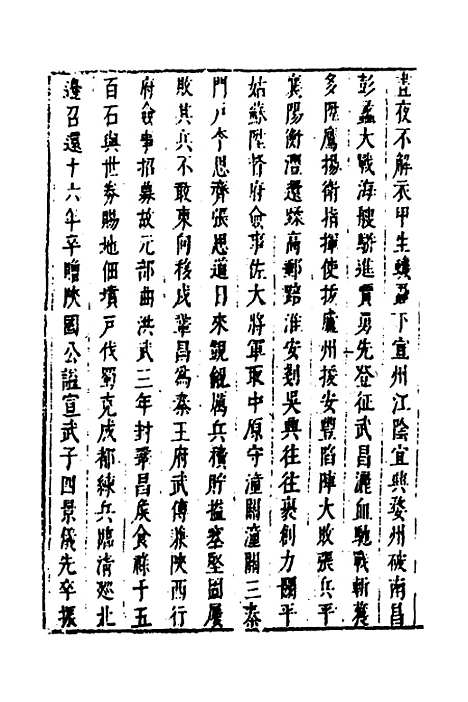 晝夜不解衣甲生蟣蝨下宣州江陰宜興婺州破南昌
彭蠡大戰海艘驕進賈勇先登征武昌灑血馳戰斬獲
多陞鷹揚衛指揮使拔廬州援安豐陷陣大敗張兵平
襄陽衡澧還蹂高郵踣淮安剗吳興往往裹創力鬭平
姑蘇陞督府僉事佐大將軍取中原守潼關潼關三秦
門戶李思齊張思道日來窺覦厲兵積貯搤塞堅固屢
敗其兵不敢東向移戍鞏昌為秦王府武傅兼陝西行
府僉事招募故元部曲洪武三年封鞏昌侯食祿十五
百石與世券賜地佃墳戶伐蜀克成都練兵臨清廵北
邊召還十六年卒贈陝國公謚宣武子四景儀先卒振